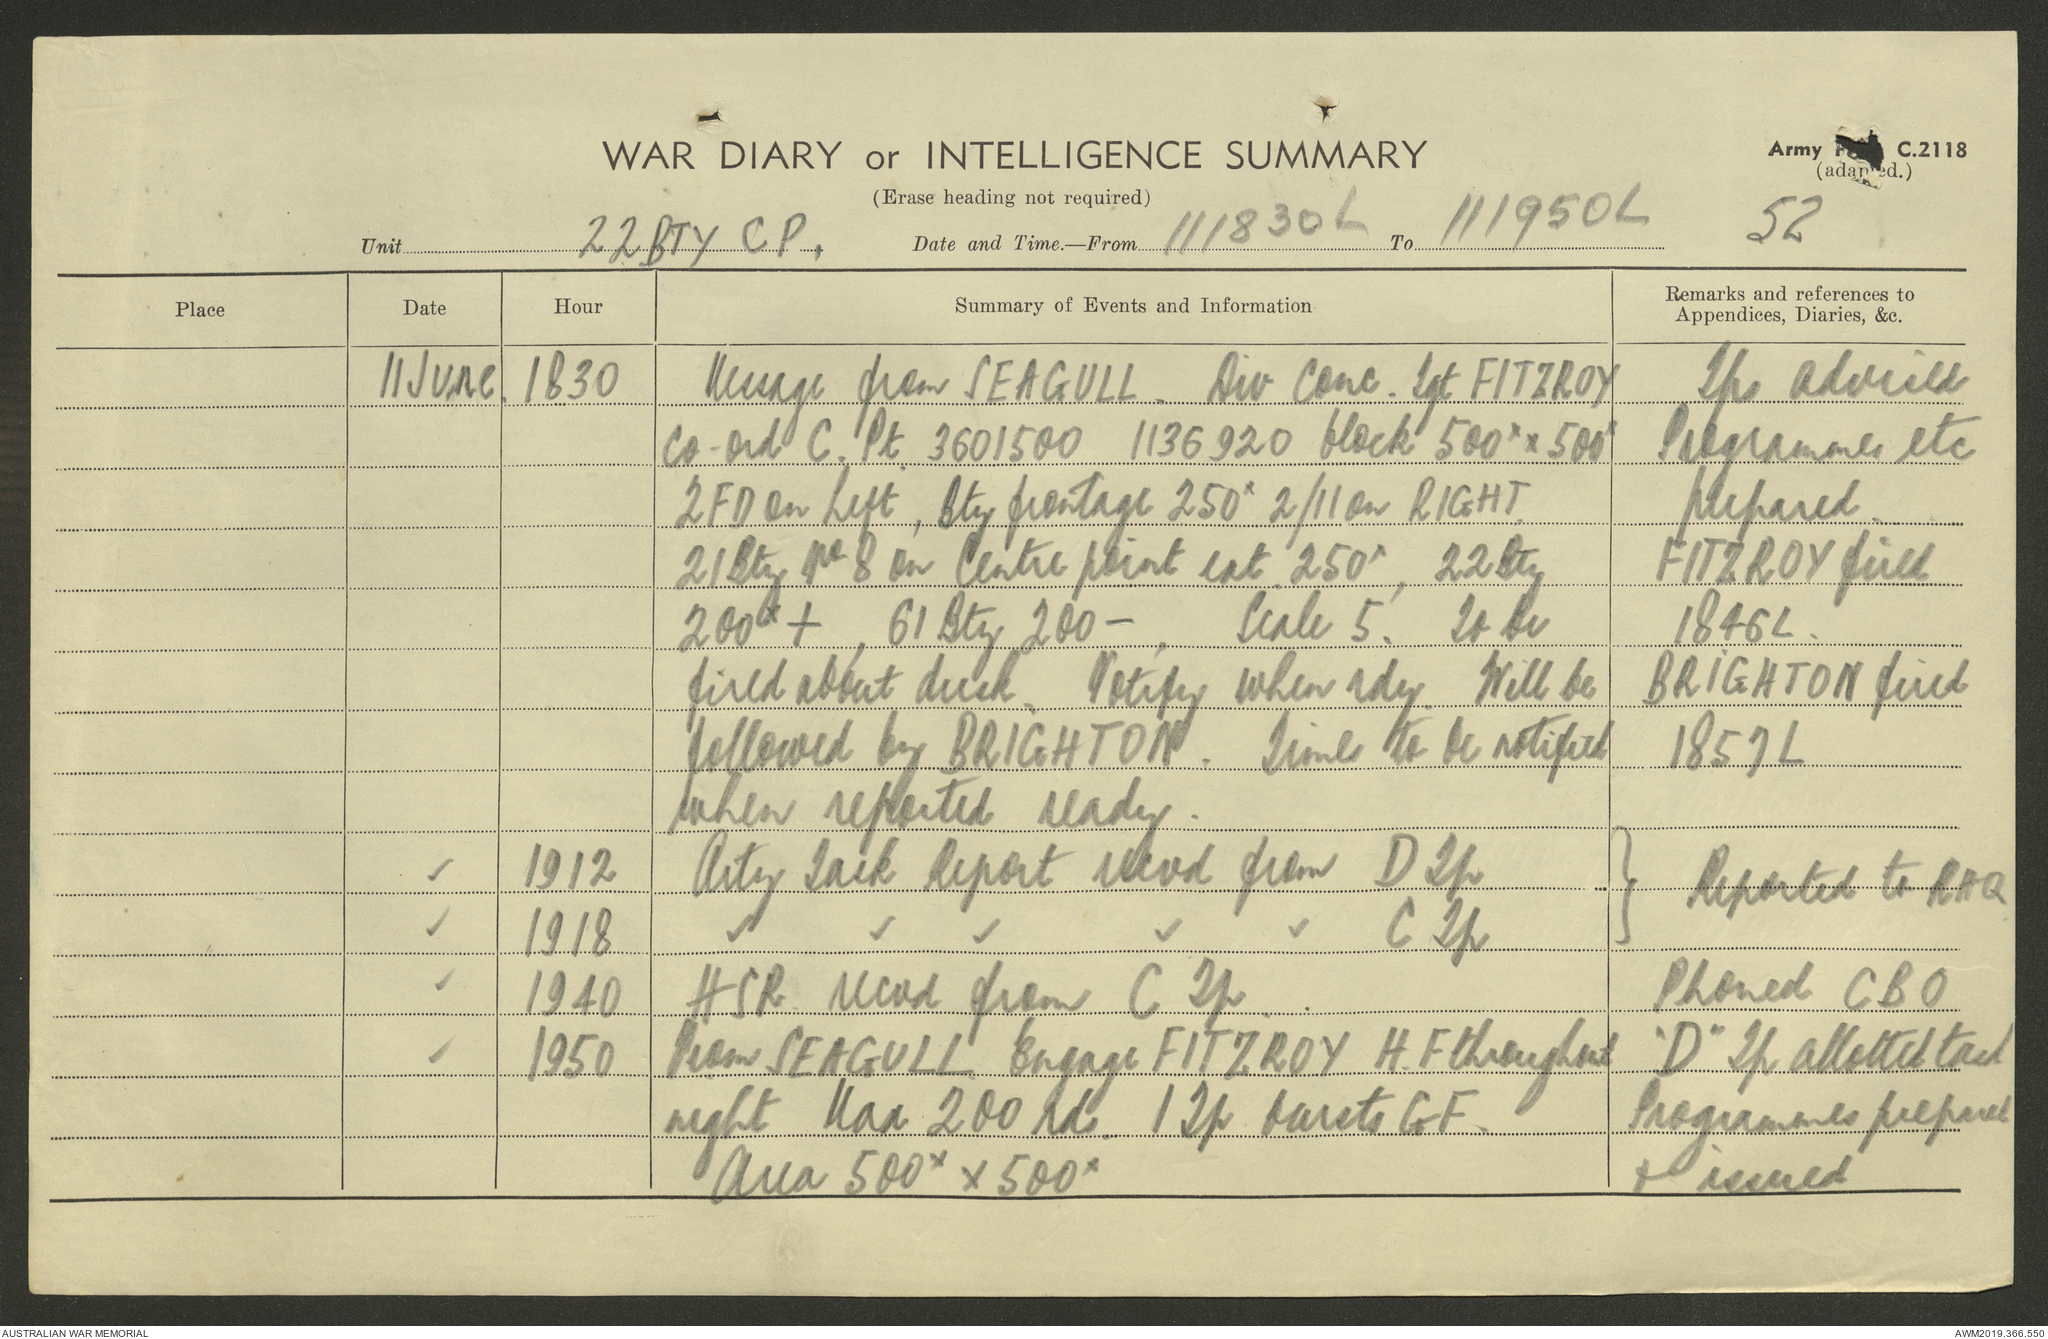 WAR DIARY or INTELLIGENCE SUMMARY
(Erase heading not required)
Army C.2118
(adapted.)
Unit 22 BTY C P. Date and Time.—From 111830L To 111950L 52
Place Date Hour Summary of Events and Information Remarks and references to
Appendices, Diaries, &c.
11 June. 1830 Message from SEAGULL. Div Conc. Tgt FITZROY Tps advised
co-ord C. Pt. 3601500 1136920 block 500ˣ x 500ˣ Programmes etc
2 FD on Left, Bty frontage 250ˣ 2/11 on RIGHT. prepared.
21 Bty No 8 on Centre point ext 250ˣ, 22 Bty FITZROY fired
200ˣ +, 61 Bty 200 -, Scale 5. To be 1846L.
fired about dusk. Notify when rdy. Will be BRIGHTON fired
followed by BRIGHTON. Times to be notified 1857L
when reported ready.
✓ 1912 Arty Task Report recvd from D Tp } Reported to RHQ
✓ 1918 ✓ ✓ ✓ ✓ ✓ C Tp
✓ 1940 HSR recvd from C Tp. Phoned CBO
✓ 1950 From SEAGULL. Engage FITZROY H.F throughout "D" Tp allotted task
night Max 200 rds. 1 Tp bursts GF. Programmes prepared
Area 500ˣ x 500ˣ + issued
AUSTRALIAN WAR MEMORIAL AWM2019.366.550